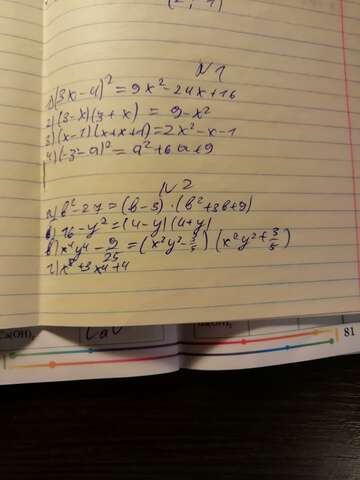 N1
1) (3x-4)² = 9x²-24x+16
2) (3-x)(3+x) = 9-x²
3) (x-1)(x+x+1) = 2x²-x-1
4) (-3-a)² = a²+6a+9
N2
а) b²-27 = (b-3)·(b²+3b+9)
б) 16-y² = (4-y)(4+y)
в) x⁴y⁴ - 9/25 = (x²y² - 3/5)(x²y² + 3/5)
г) x⁸+3x4+4
81